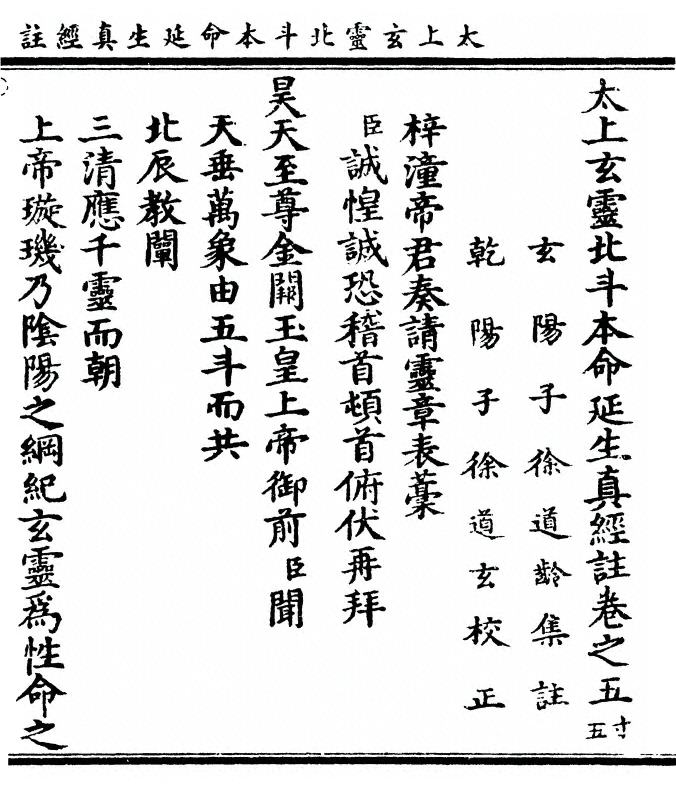 太上玄靈北斗本命延生真經註
太上玄靈北斗本命延生真經註卷之五 寸五
玄陽子徐道齡集註
乾陽子徐道玄校正
梓潼帝君奏請靈章表藁
臣誠惶誠恐稽首頓首俯伏再拜
昊天至尊金闕玉皇上帝御前臣聞
天垂萬象由五斗而共
北辰教闡
三清應千靈而朝
上帝璇璣乃陰陽之綱紀玄靈爲性命之